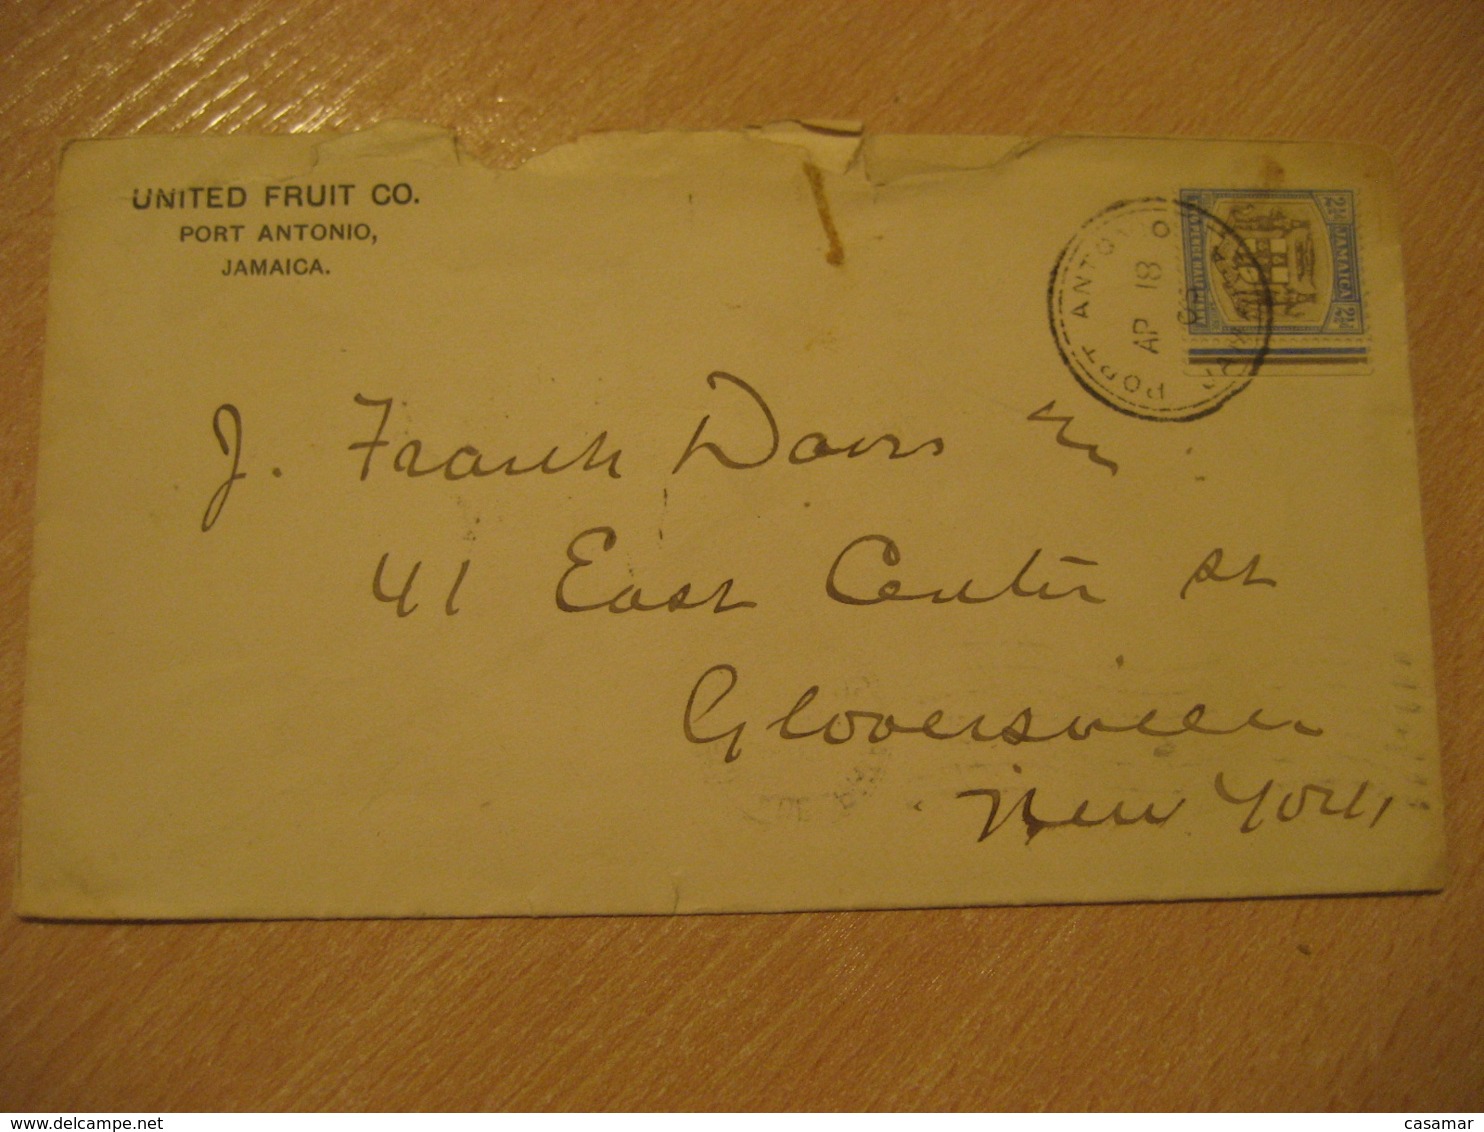 UNITED FRUIT CO.
PORT ANTONIO,
JAMAICA.
PORT ANTONIO
AP 18
JAMAICA
2½
2½
J. Frank Davis
41 East Center St
Gloversville
New York
casamar